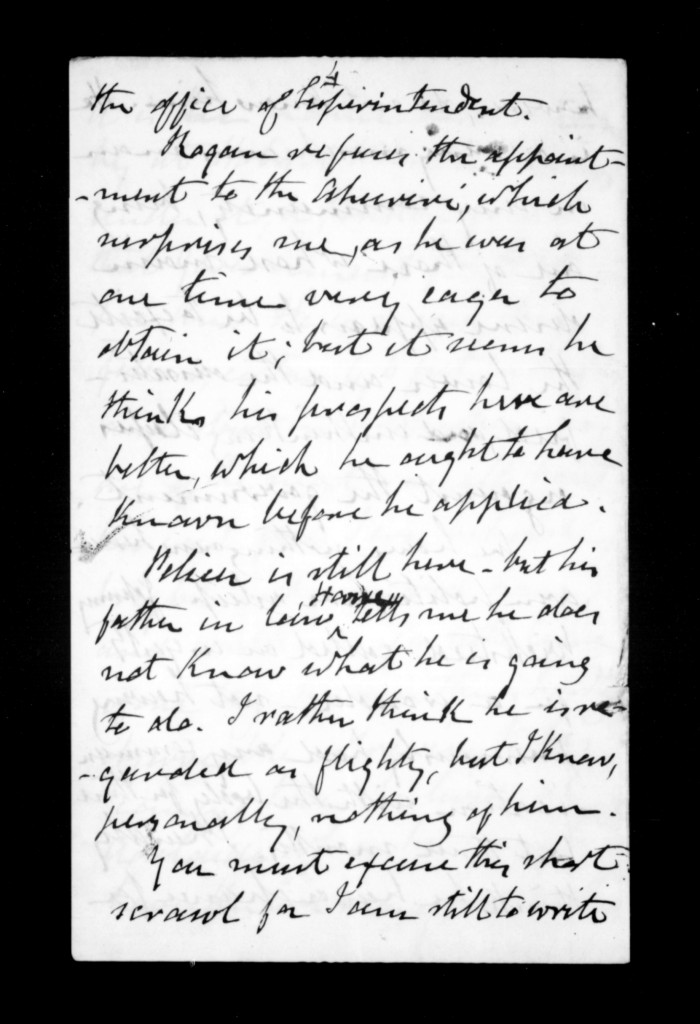 the office of Superintendent.
Rogan refuses the appoint-
-ment to the Ahuriri, which
surprises me, as he was at
one time very eager to
obtain it; but it seems he
thinks his prospects here are
better, which he ought to have
known before he applied.
is still here - but his
father in law, Harvey tells me he does
not know what he is going
to do. I rather think he is re-
-garded as flighty, but I know,
personally, nothing of him.
You must excuse this short
scrawl for I am still to write